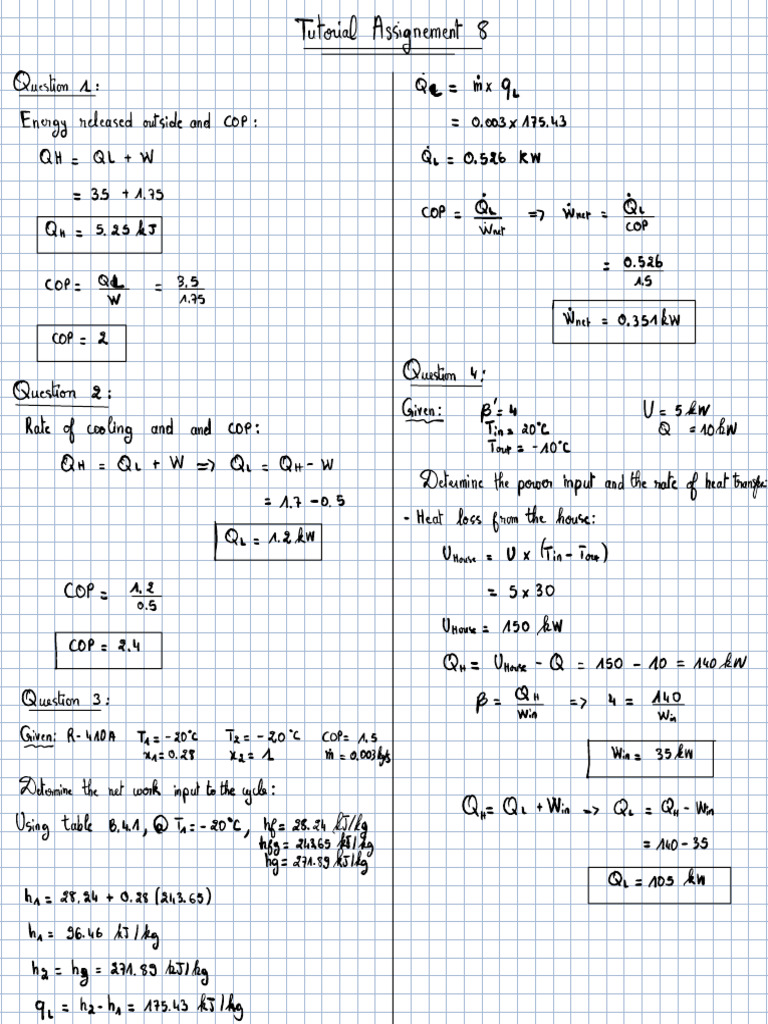 Tutorial Assignement 8
Question 1:
Energy released outside and COP:
QH = QL + W
= 35 + 1.75
QH = 5.25 kJ
COP = QL/W = 3.5/1.75
COP = 2
Question 2:
Rate of cooling and and COP:
QH = QL + W => QL = QH - W
= 1.7 - 0.5
QL = 1.2 kW
COP = 1.2/0.5
COP = 2.4
Question 3:
Given: R-410A T1 = -20°C T2 = -20°C COP = 1.5
x1 = 0.28 x2 = 1 ṁ = 0.003 kg/s
Determine the net work input to the cycle:
Using table B.4.1, @ T1 = -20°C, hf = 28.24 kJ/kg
hfg = 243.65 kJ/kg
hg = 271.89 kJ/kg
h1 = 28.24 + 0.28 (243.65)
h1 = 96.46 kJ/kg
h2 = hg = 271.89 kJ/kg
qL = h2 - h1 = 175.43 kJ/kg
Q̇L = ṁ x qL
= 0.003 x 175.43
Q̇L = 0.526 kW
COP = Q̇L/Ẇnet => Ẇnet = Q̇L/COP
= 0.526/1.5
Ẇnet = 0.351 kW
Question 4:
Given: β' = 4 U = 5 kW
Tin = 20°C Q = 10 kW
Tout = -10°C
Determine the power input and the rate of heat transfer:
- Heat loss from the house:
UHouse = U x (Tin - Tout)
= 5 x 30
UHouse = 150 kW
QH = UHouse - Q = 150 - 10 = 140 kW
β = QH/Win => 4 = 140/Win
Win = 35 kW
QH = QL + Win => QL = QH - Win
= 140 - 35
QL = 105 kW